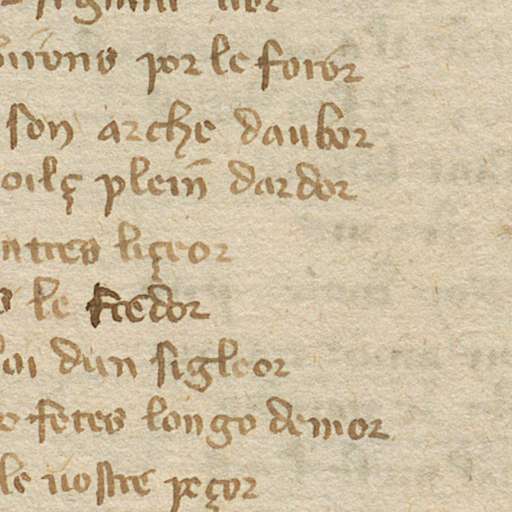 virons por le foror
son arche daubor
oilç plein dardor
ntres liçeor
le
lai dun sigleor
fetes longo demor
le uostre peçor